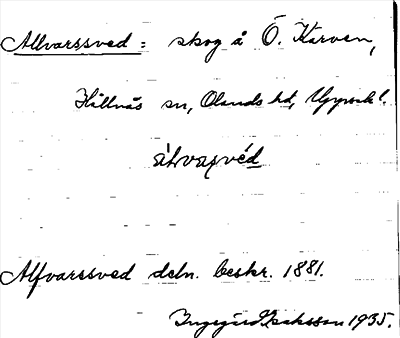 Allvarssved : skog å Ö. Karven,
Hållnäs sn, Olands hd, Uppsala l.
Alfvarssved deln. beskr. 1881.
Ingegärd Isaksson 1935.